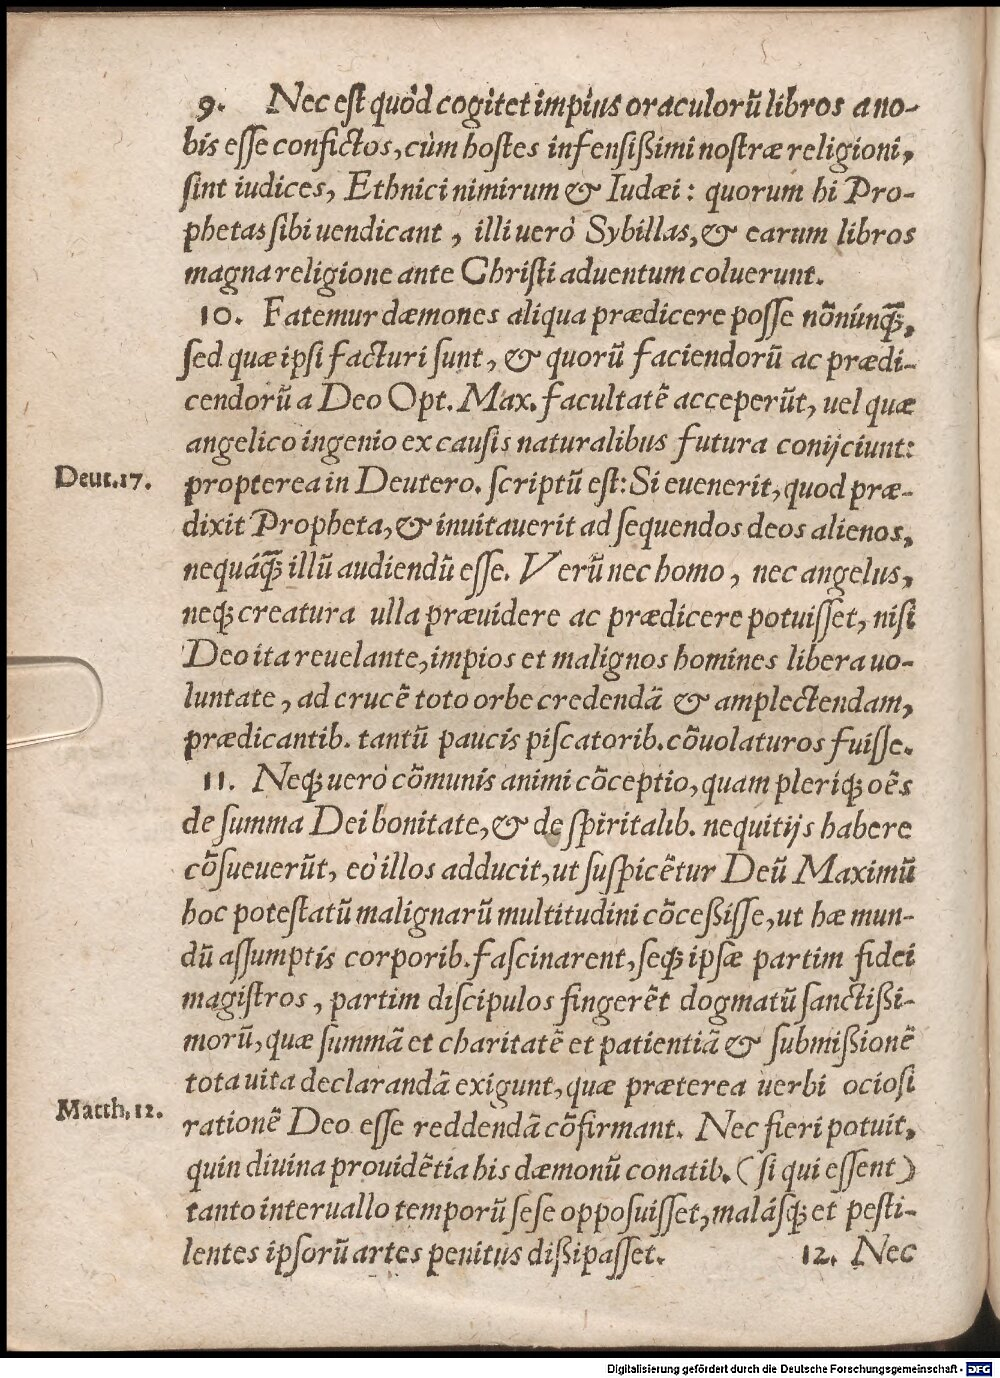 9. Nec est quòd cogitet impius oraculorū libros a no-
bis esse confictos, cùm hostes infensißimi nostræ religioni,
sint iudices, Ethnici nimirum & Iudæi: quorum hi Pro-
phetas sibi uendicant, illi uerò Sybillas, & earum libros
magna religione ante Christi aduentum coluerunt.
10. Fatemur dæmones aliqua prædicere posse nōnúnq̃;,
sed quæ ipsi facturi sunt, & quorū faciendorū ac prædi-
cendorū a Deo Opt. Max. facultatē acceperūt, uel quæ
angelico ingenio ex causis naturalibus futura conijciunt:
Deut. 17.
propterea in Deutero. scriptū est: Si euenerit, quod præ-
dixit Propheta, & inuitauerit ad sequendos deos alienos,
nequáq̃; illū audiendū esse. Verū nec homo, nec angelus,
neq; creatura ulla præuidere ac prædicere potuisset, nisi
Deo ita reuelante, impios et malignos homines libera uo-
luntate, ad crucē toto orbe credendā & amplectendam,
prædicantib. tantū paucis piscatorib. cōuolaturos fuisse.
11. Neq; uerò cōmunis animi cōceptio, quam pleriq; oēs
de summa Dei bonitate, & de spiritalib. nequitijs habere
cōsueuerūt, eò illos adducit, ut suspicētur Deū Maximū
hoc potestatū malignarū multitudini cōceßisse, ut hæ mun-
dū assumptis corporib. fascinarent, seq; ipsæ partim fidei
magistros, partim discipulos fingerēt dogmatū sanctißi-
morū, quæ summā et charitatē et patientiā & submißionē
tota uita declarandā exigunt, quæ præterea uerbi ociosi
Matth. 12.
rationē Deo esse reddendā cōfirmant. Nec fieri potuit,
quin diuina prouidētia his dæmonū conatib. (si qui essent)
tanto interuallo temporū sese opposuisset, malásq; et pesti-
lentes ipsorū artes penitus dißipasset.
12. Nec
Digitalisierung gefördert durch die Deutsche Forschungsgemeinschaft - DFG